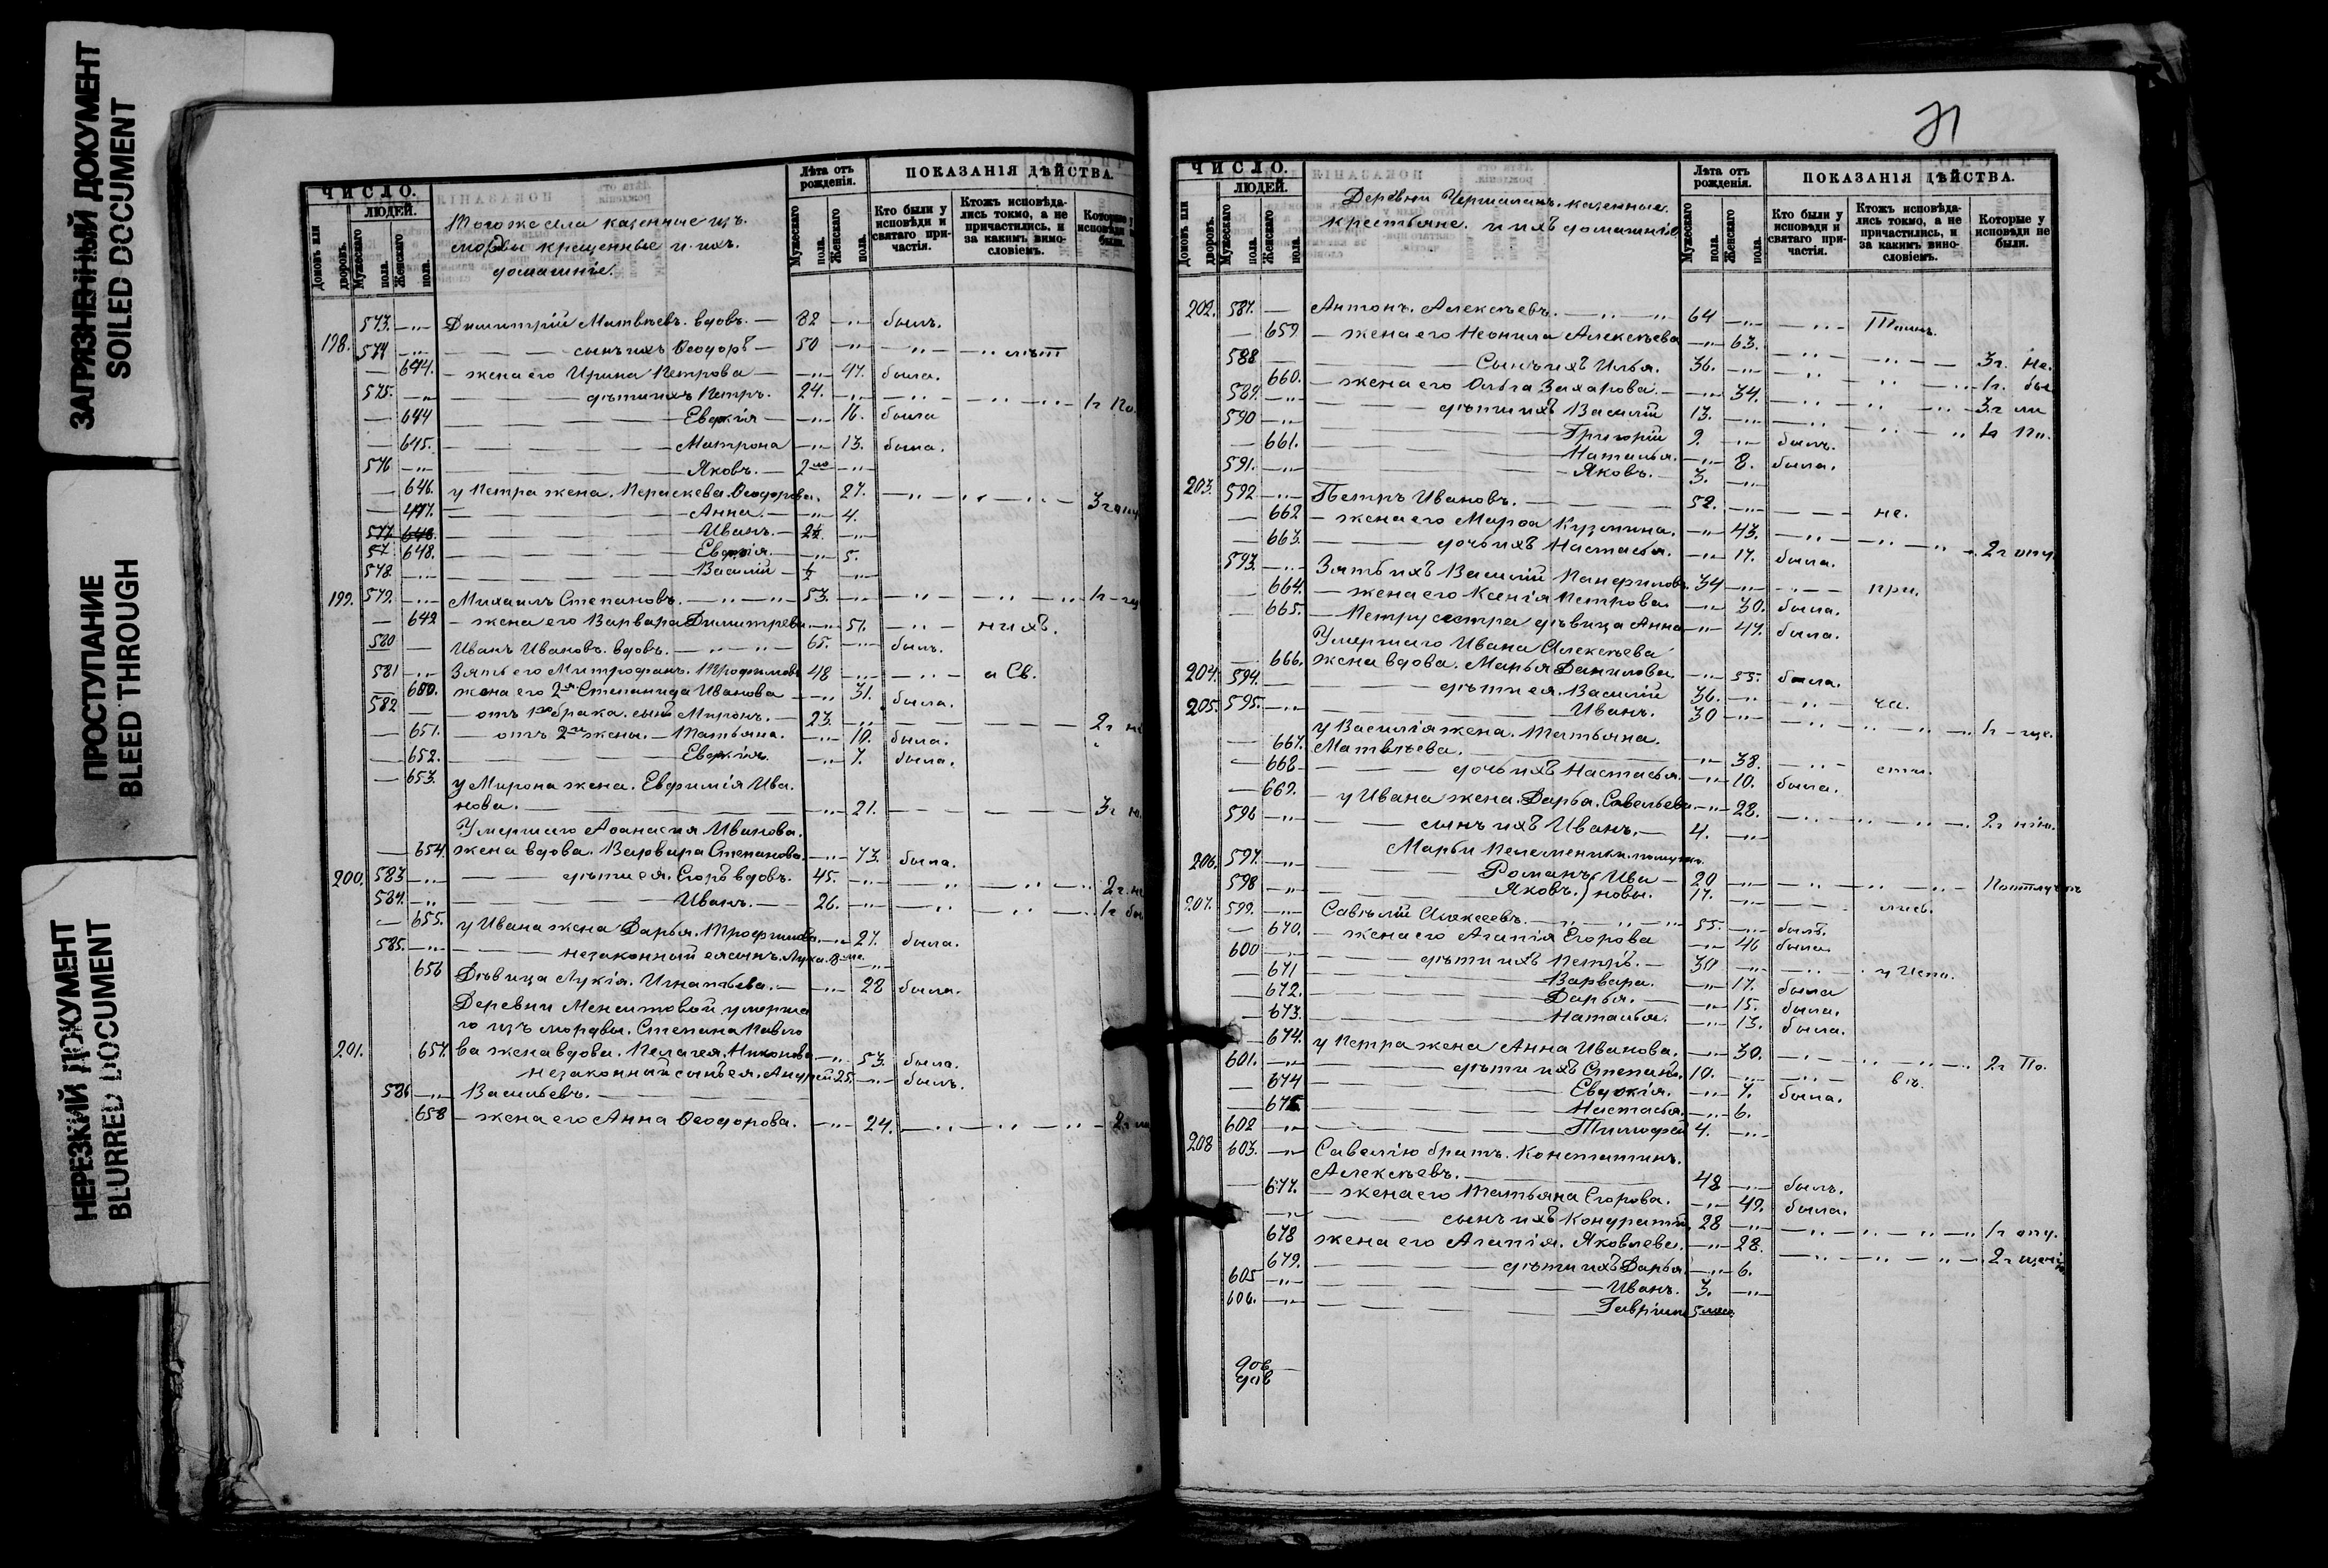 ЗАГРЯЗНЕННЫЙ ДОКУМЕНТ
SOILED DOCUMENT
ПРОСТУПАНИЕ
BLEED THROUGH
НЕРЕЗКИЙ ДОКУМЕНТ
BLURRED DOCUMENT
ЧИСЛО.
ЛЮДЕЙ.
Домовъ или дворовъ.
Мужескаго пола.
Женскаго пола.
Тогоже села казенные изъ
мордвы крещенные и ихъ
домашніе.
Лѣта отъ рожденія.
Мужескаго пола.
Женскаго пола.
ПОКАЗАНІЯ ДѢЙСТВА.
Кто были у исповѣди и святаго причастія.
Ктожъ исповѣдались токмо, а не причастились, и за какимъ винословіемъ.
Которые у исповѣди не были.
573. Димитрій Матвѣевъ. вдовъ. 82 былъ.
198. 574 сынъ ихъ Ѳеодоръ 50
644. жена его Ирина Петрова 47. была.
575. дѣти ихъ Петръ. 24. 1г По.
644 Евдокія 16. была
645. Матрона 13. была.
576 Яковъ. 2
646. у Петра жена. Пераскева. Ѳеодорова. 27. 3г
Анна. 4.
577 Иванъ. 2½.
57 648. Евдокія. 5.
578. Василій ½
199. 579. Михаилъ Степановъ. 53.
649 жена его Варвара Димитрева 51. нихъ.
580 Иванъ Ивановъ. вдовъ. 65. былъ.
581 Зять его Митрофанъ. Трофимовъ 48 а Св.
650. жена его 2я Степанида Иванова 31. была.
582 отъ 1го брака. сынъ Миронъ. 23. 2г
651. отъ 2й жены. Татьяна. 10. была.
652. Евдокія. 7. была.
653. у Мирона жена. Евфимія Ива.
нова. 21. 3г
Умершаго Аѳанасія Иванова.
654. жена вдова. Варвара Степанова. 73. была.
200. 583 дѣти ея. Егоръ вдовъ. 45. 2г.
584. Иванъ. 26. 1г
655. у Ивана жена Дарья. Трофимова. 27. была.
585. незаконный ея сынъ. Лука.
656 Дѣвица Лукія. Игнатьева. 28 была.
Деревни умерша
го изъ мордвы. Степана Павло
201. 657. ва жена вдова. Пелагея. Никонова 53. была.
незаконный сынъ ея. Андрей 25. былъ.
586 Васильевъ.
658 жена его Анна Ѳеодорова. 24. 2г
ЧИСЛО.
ЛЮДЕЙ.
Домовъ или дворовъ.
Мужескаго пола.
Женскаго пола.
Деревни казенные.
крестьяне. и ихъ домашніе.
Лѣта отъ рожденія.
Мужескаго пола.
Женскаго пола.
ПОКАЗАНІЯ ДѢЙСТВА.
Кто были у исповѣди и святаго причастія.
Ктожъ исповѣдались токмо, а не причастились, и за какимъ винословіемъ.
Которые у исповѣди не были.
202. 587. Антонъ. Алексѣевъ. 64
659 жена его Неонила Алексѣева 63.
588 Сынъ ихъ Илья. 36. 3г. Не.
660. жена его Ольга Захарова. 34. 1г.
589. дѣти ихъ Василій 13. 3г
590 Григорій 9. былъ. 1г По.
661. Наталья. 8. была.
591. Яковъ. 3.
203. 592 Петръ Ивановъ. 52. не.
662 жена его Марѳа Кузмина. 43. 2г
663. дочь ихъ Настасья. 17. была.
593. Зять ихъ Василій Панфиловъ. 34 при.
664. жена его Ксенія Петрова 30. была.
665. Петру сестра дѣвица Анна 47. была.
Умершаго Ивана Алексѣева
666. жена вдова. Марья Данилова 55. была.
204. 594. дѣти ея. Василій 36. ча.
205. 595. Иванъ. 30
у Василія жена. Татьяна.
667. Матвѣева. 38. сти.
668 дочь ихъ Настасья. 10. была.
669. у Ивана жена. Дарья. Савельева 28. 2г
596 сынъ ихъ Иванъ. 4.
Марьи
206. 597. Романъ. Ива 20
598 Яковъ. новы. 17. лись.
207. 599. Савелій Алексеевъ. 55. былъ.
670. жена его Агапія Егорова 46 была.
600 дѣти ихъ Петръ. 30 у Испо.
671 Варвара. 17. была
672. Дарья. 15. была.
673. Наталья. 13. была.
674. у Петра жена Анна Иванова. 30. 2г По.
601. дѣти ихъ Степанъ. 10. въ.
674 Евдокія. 7. была.
Настасья. 6.
602 Тимофей 4.
208 603. Савелію братъ. Константинъ.
Алексѣевъ. 48 былъ.
677. жена его Татьяна Егорова. 49. была.
сынъ ихъ Кондратій 28 1г опу.
678 жена его Агапія. Яковлева. 28. 2г
679. дѣти ихъ Дарья. 6.
605 Иванъ. 3.
606. Гавріилъ 5